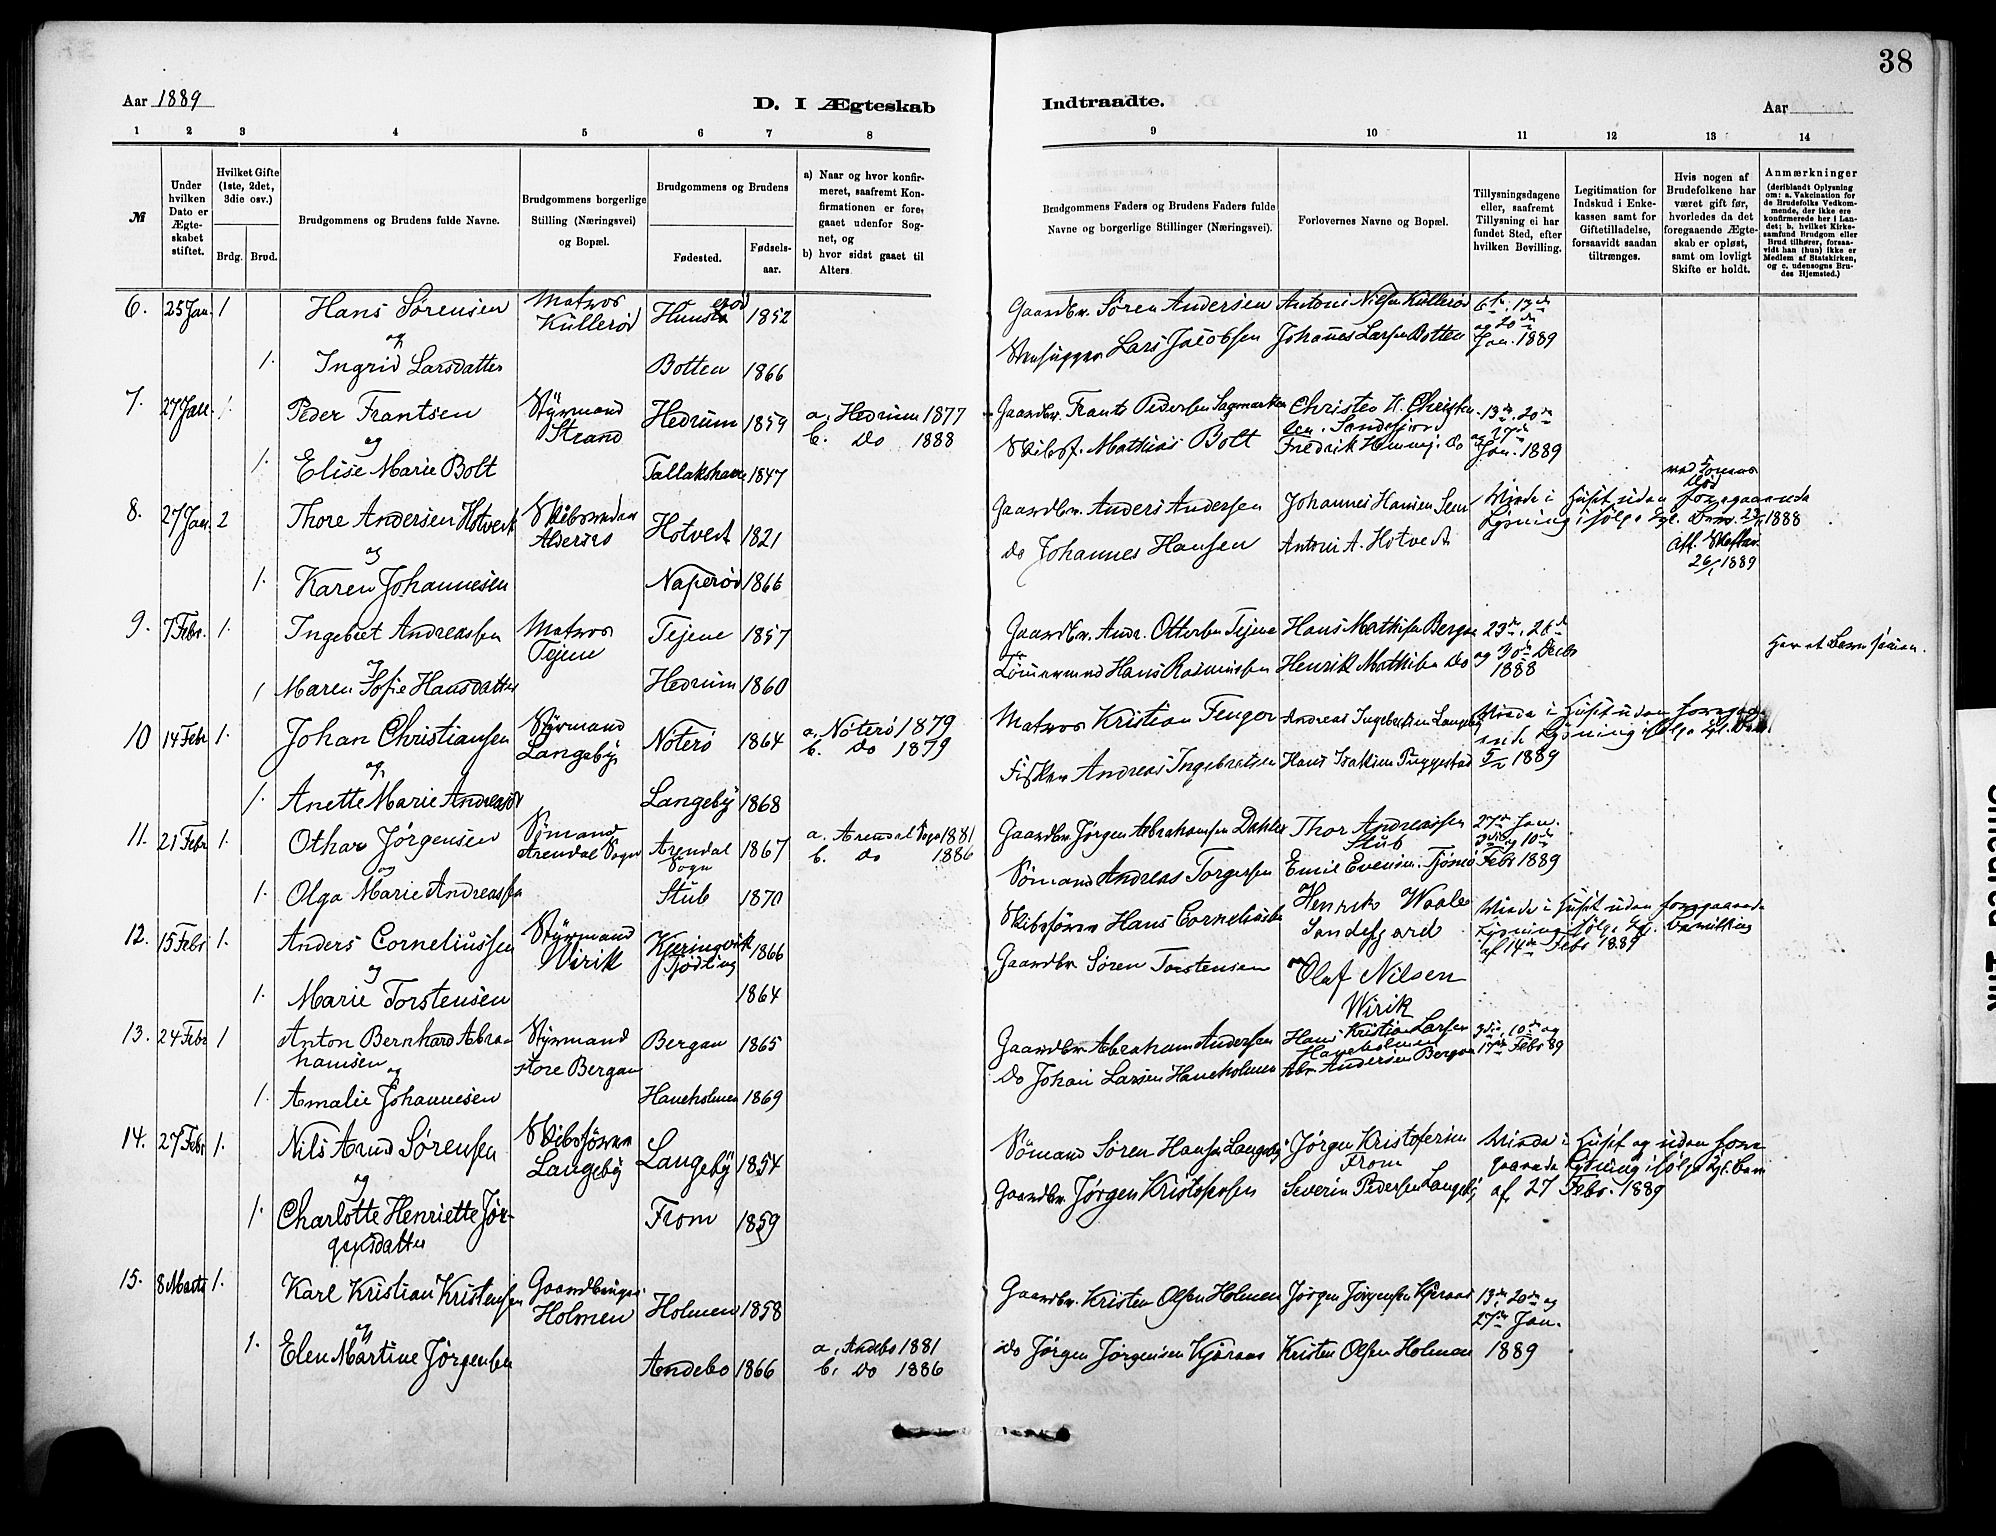 38
Aar 1889
D. I Ægteskab
Indtraadte.
Aar
1 2 3 4 5 6 7 8
9 10 11 12 13 14
№
Under hvilken Dato er Ægteskabet stiftet.
Hvilket Gifte (1ste, 2det, 3die osv.)
Brdg. Brud.
Brudgommens og Brudens fulde Navne.
Brudgommens borgerlige Stilling (Næringsvei) og Bopæl.
Brudgommens og Brudens
Fødested.
Fødselsaar.
a) Naar og hvor konfirmeret, saafremt Konfirmationen er foregaaet udenfor Sognet, og
b) hvor sidst gaaet til Alters.
Brudgommens Faders og Brudens Faders fulde Navne og borgerlige Stillinger (Næringsvei).
Forlovernes Navne og Bopæl.
Tillysningsdagene eller, saafremt Tillysning ei har fundet Sted, efter hvilken Bevilling.
Legitimation for Indskud i Enkekassen samt for Giftetilladelse, forsaavidt saadan tiltrænges.
Hvis nogen af Brudefolkene har været gift før, hvorledes da det foregaaende Ægteskab er opløst, samt om lovligt Skifte er holdt.
Anmærkninger (deriblandt Oplysning om: a. Vakcination for de Brudefolks Vedkommende, der ikke ere konfirmerede her i Landet; b. hvilket Kirkesamfund Brudgom eller Brud tilhører, forsaavidt han (hun) ikke er Medlem af Statskirken, og c. udensogns Brudes Hjemsted.)
6. 25 Jan. 1 Hans Sørensen Matros Kullerød 1852 Gaardbr. Søren Andersen Antoni Nilsen Kullerød 6te, 13de
og 20de
1. Ingrid Larsdatter Botten 1866 Lars Jacobsen Johannes Larsen Botten Jan. 1889
7. 27 Jan. 1. Peder Frantsen Styrmand Strand Hedrum 1859 a. Hedrum 1877 Gaardbr. Frants Pedersen Christen H. Christensen. Sandefjord 13de, 20de
og b. Do 1888 og 27de
1. Elise Marie Bolt 1847 Mathias Bolt Fredrik Do Jan. 1889
8. 27 Jan. 2 Thore Andersen Hotvedt Hotvedt 1821 Gaardbr. Anders Andersen Johannes Hansen Viede i Huset uden foregaaende
og Lysning ifølge Kgl. Bev. 1888
1. Karen Johannesen Naperød 1866 Do Johannes Hansen Antoni A. Hotvedt 26/1 1889
9. 7 Febr. 1. Ingebret Andreassen Matros Tejene Tejene 1857 Gaardbr. Andr. Ottersen Tejene Hans Mathisen Bergan 23de, 26de
og og 30de Decbr
1 Maren Sofie Hansdatter Hedrum 1860 Tømmermand Hans Rasmussen Henrik Mathisen Do 1888
10 14 Febr 1. Johan Christiansen Styrmand Langeby Nøterø 1864 a. Nøterø 1879 Matros Kristian Andreas Ingebretsen Langeby Viede i Huset uden foregaaende
og b. Do 1879 Lysning ifølge Kgl. Bev.
1. Anette Marie Andreasd Langeby 1868 Fisker Andreas Ingebretsen Hans Isaksen 1889
11. 21 Febr 1. Othar Jørgensen Sømand Arendal Sogn Arendal Sogn 1867 a. Arendal Sogn 1881 Gaardbr. Jørgen Abrahamsen Thor Andreassen Stub 27de Jan.
og b. Do 1886 3die og 10de
1. Olga Marie Andreassen Stub 1870 Sømand Andreas Torgersen Emil Evensen. Tjømø Febr 1889
12. 15 Febr 1. Anders Corneliussen Styrmand Wirik Kjeringvik Tjødling 1866 Skibsfører Hans Corneliussen Henrik Sandefjord Viede i Huset uden foregaaende
og Lysning ifølge Kgl. Bevilling
1. Marie Torstensen 1864 Gaardbr Søren Torstensen Olaf Nilsen Wirik af 14de Febr 1889
13. 24 Febr 1 Anton Bernhard Abrahamsen Styrmand store Bergan Bergan 1865 Gaardbr Abraham Andersen Hans Kristian Larsen Haneholmen 3die, 10de og
og 17de Febr 89
1. Amalie Johannesen Haneholmen 1869 Do Johan Larsen Haneholmen Abr. Andersen Bergan
14. 27 Febr 1. Nils Arnd Sørensen Skibsfører Langeby Langeby 1854 Sømand Søren Hansen Langeby Jørgen Kristofersen From Viede i Huset og uden foregaaende
og Lysning ifølge Kgl. Bev
1. Charlotte Henriette Jørgensdatter From 1859 Gaardbr. Jørgen Kristofersen Severin Pedersen Langeby af 27 Febr. 1889
15. 8 Marts 1. Karl Kristian Kristensen Gaardbruger Holmen Holmen 1858 Gaardbr. Kristen Olsen Holmen Jørgen Jørgensen Kjæraas 13de, 20de og
og 27de Jan.
1. Elen Martine Jørgensen Andebo 1866 a. Andebo 1881 Do Jørgen Jørgensen Kjæraas Kristen Olsen Holmen 1889
b. Do 1886